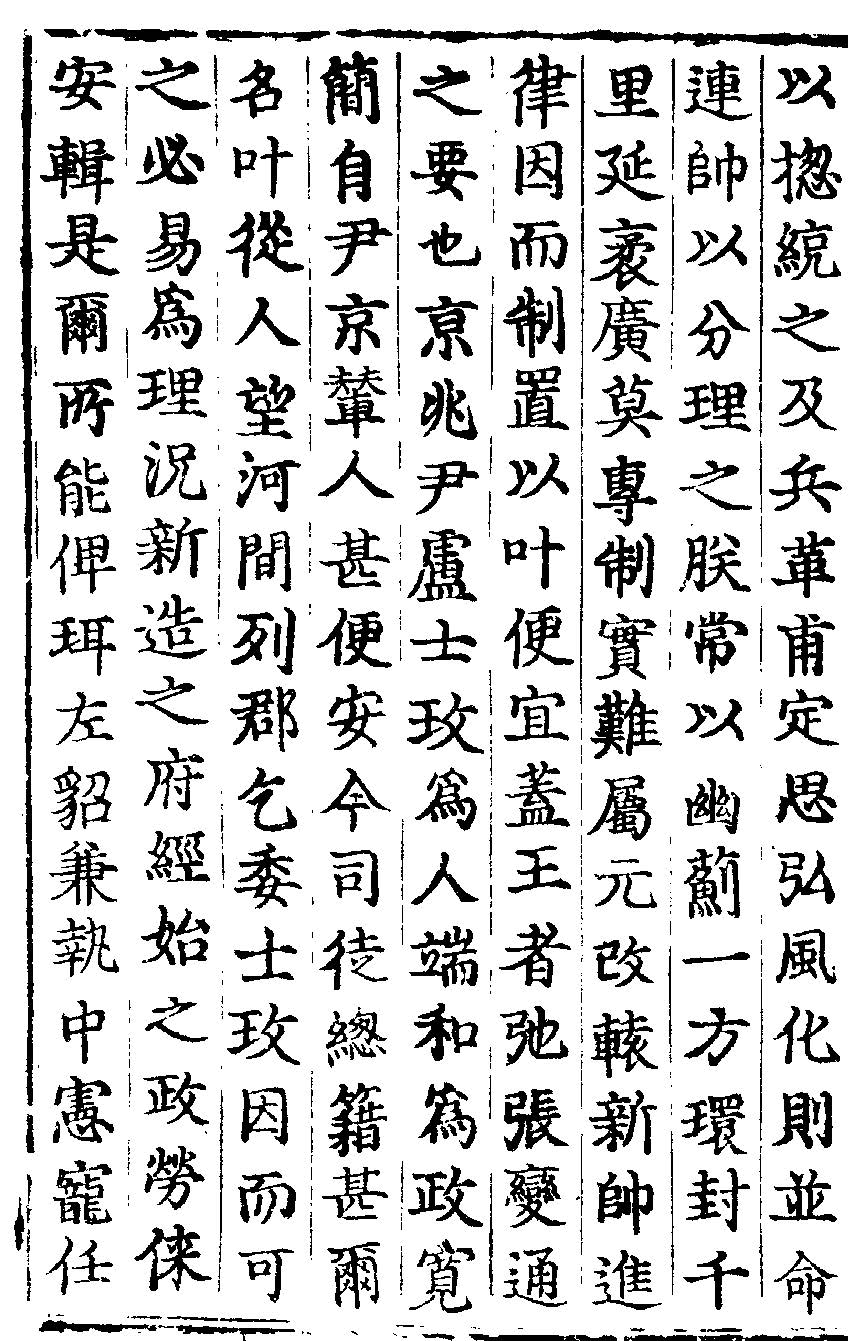 以揔統之及兵革甫定思弘風化則並命
連帥以分理之朕常以幽薊一方環封千
里延袤廣莫專制實難屬元改轅新帥進
律因而制置以叶便宜蓋王者弛張變通
之要也京兆尹盧士玫為人端和為政寬
簡自尹京輦人甚便安今司徒總籍甚爾
名叶從人望河間列郡乞委士玫因而可
之必易為理況新造之府經始之政勞倈
安輯是爾所能俾珥左貂兼執中憲寵任